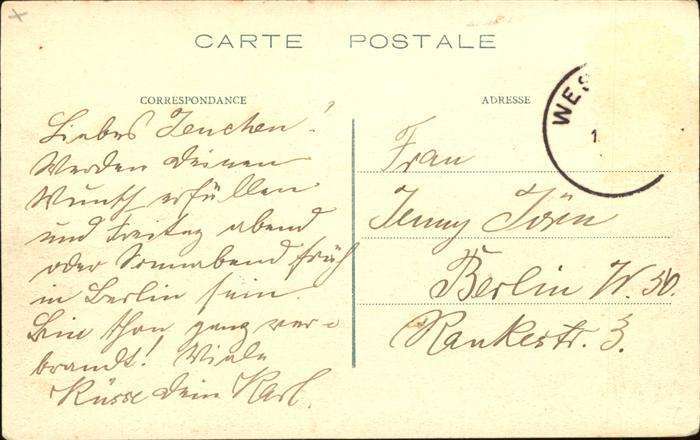 CARTE POSTALE
CORRESPONDANCE
ADRESSE
WES
1.
Liebes Jenchen!
Werden Deinen
Wunsch erfüllen
und Freitag abend
oder Sonnabend früh
in Berlin sein.
Bin schon ganz ver-
brandt! Viele
Küsse Dein Karl.
Frau
Jenny
Berlin W. 50.
Rankestr. 3.